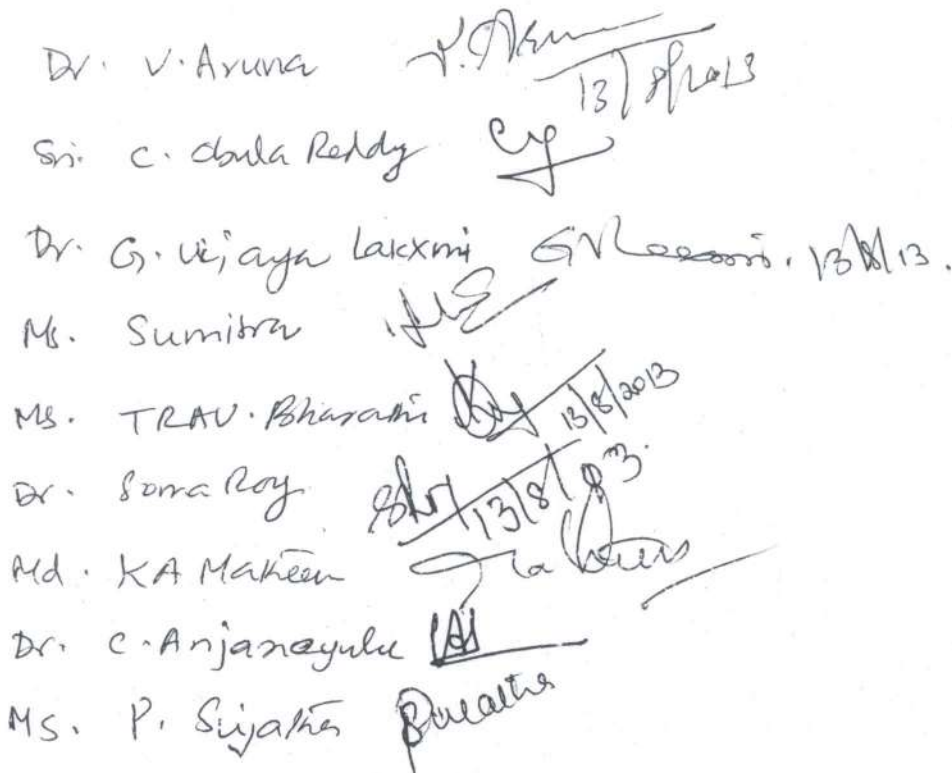 Dr. V. Aruna 13/8/2013
Sri. C. Obula Reddy
Dr. G. Vijaya Lakxmi 13/8/13.
Ms. Sumitra
Ms. TRAV. Bharathi 13/8/2013
Dr. Soma Roy 13/8/
Md. KA Mateen
Dr. C. Anjaneyulu
Ms. P. Sujatha